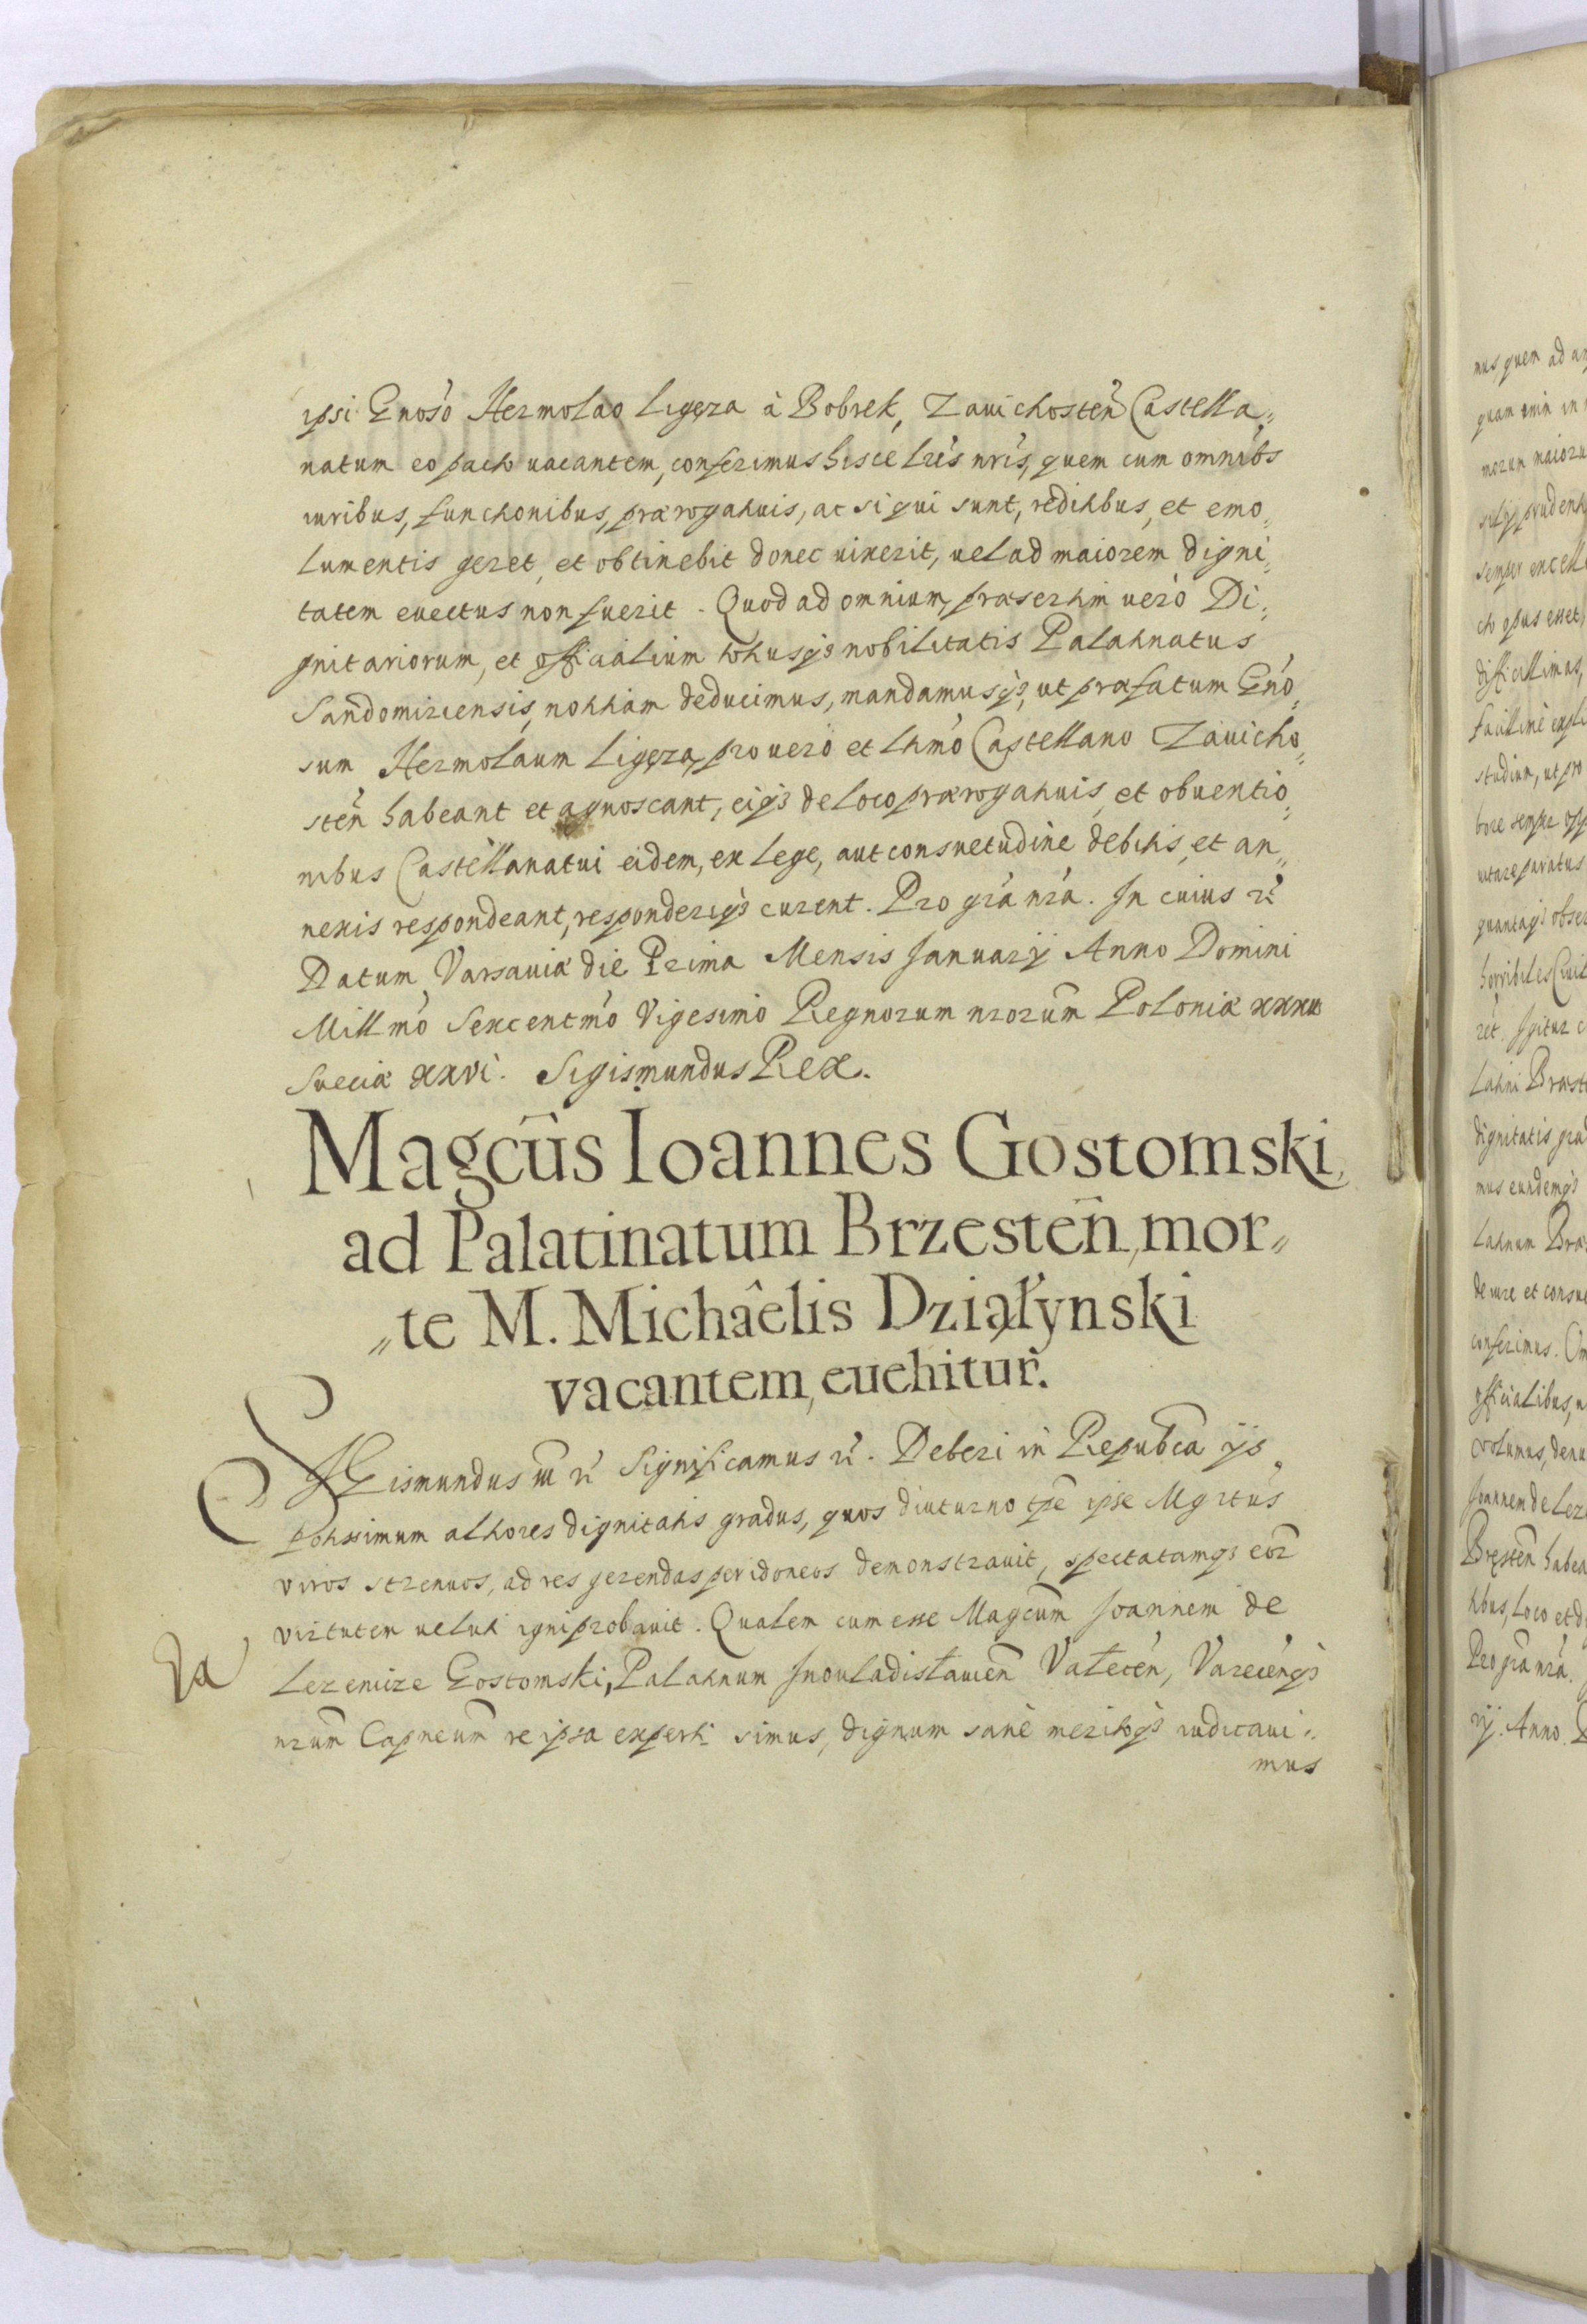 ipsi Gnoso Hermolao Ligęza à Bobrek, Zauichosteñ Castella„
natum eo pacto uacantem, conferimus hisce lrīs nrīs, quem cum omnibs
iuribus, functionibus, prærogatiuis, ac si qui sunt, reditibus, et emo„
lumentis geret, et obtinebit donec uixerit, uel ad maiorem digni„
tatem euectus non fuerit. Quod ad omnium, præsertim uerò Di„
gnitariorum, et officialium totiusq̃ nobilitatis Palatinatus
Sandomiriensis, notitiam deducimus, mandamusq̃, ut præfatum Gno„
sum Hermolaum Ligęza, pro uero et ltimo Castellano Zauicho„
steñ habeant et agnoscant, eiq̃ de loco prærogatiuis, et obuentio„
nibus Castellanatui eidem, ex lege, aut consuetudine debitis, et an„
nexis respondeant, responderiq̃ curent. Pro gra nra. In cuius rei
Datum Varsauiæ die Prima Mensis Januarij Anno Domini
Millmo Sexcentmo Vigesimo Regnorum nrorum Poloniæ
Sueciæ xxvi. Sigismundus Rex.
Magcus Ioannes Gostomski,
ad Palatinatum Brzesteñ, mor„
„te M. Michâelis Działynski
vacantem, euehitur.
SIGismundus III rĩ Significamus rĩ. Deberi in Republca ijs
potissimum altiores dignitatis gradus, quos diuturno tpe ipse Mgrtus
viros strenuos, ad res gerendas peridoneos demonstrauit, spectatamq̃ eor
virtutem ueluti igni probauit. Qualem cum esse Magcum Joannem de
Lezenicze Gostomski, Palatinum Inouladislauien Valecen, Varecenq̃
nrum Capneum re ipsa experti simus, dignum sanè meritoq̃ iudicaui„
mus
mus quem ad
quam
morum maioru
semper excell
cto opus esset,
difficillimas,
studium, ut pro
uitare paratus
horribiles
ret. Igitur
latini Bræst
dignitatis gra
mus eundemq̃
latinum Bræ
de iure et consue
conferimus.
officialibus,
volumus, denu
Joannem de Lez
Brzesteñ habea
tibus, loco et
Pro gra nra.
Anno